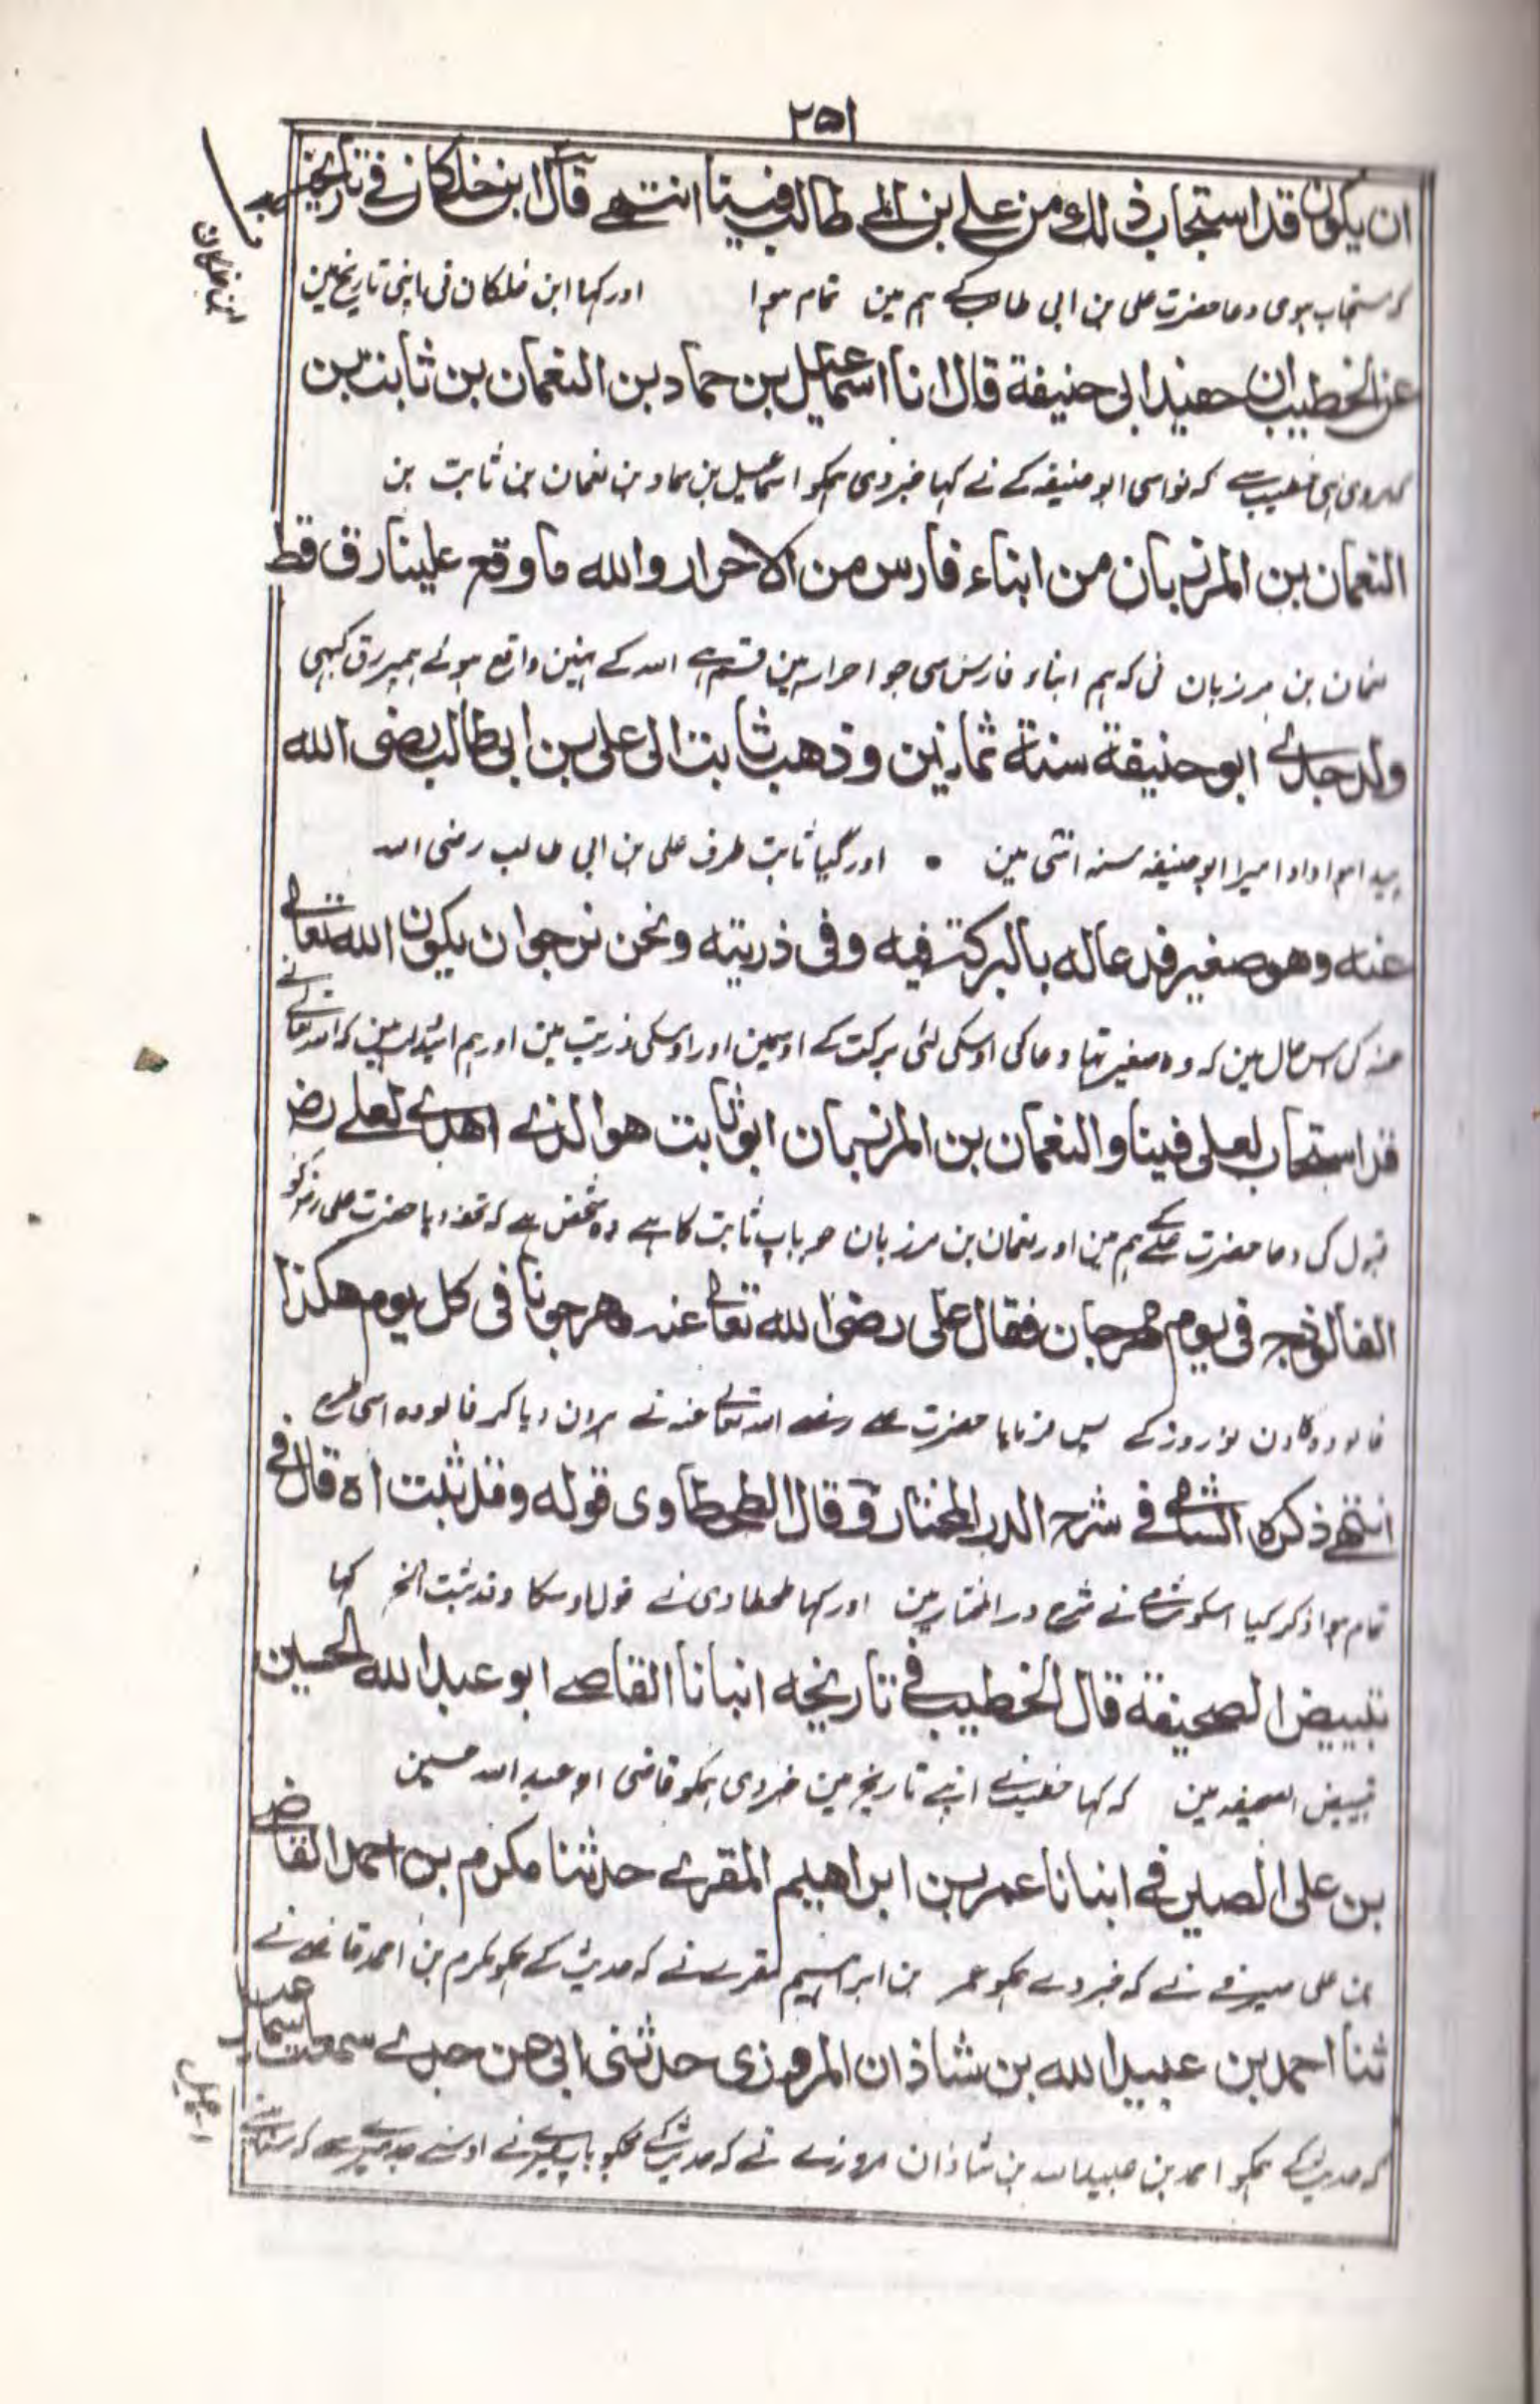 ۲۵۱
ان يكون قد استجاب ذلك من علے بن ابی طالب فينا انتهے قال ابن خلكان فے تاريخه
کہ مستجاب ہوی دعا حضرت علی بن ابی طالب کے ہم مین تمام ہوا اور کہا ابن خلکان نی اپنی تاریخ مین
عن الخطيب ان حفيد ابی حنيفة قال انا اسمٰعيل بن حماد بن النعمان بن ثابت بن
خطیب سے کہ نواسی ابو حنیفہ کے نے کہا خبر دی ہمکو اسماعیل بن حماد بن نعمان بن ثابت بن
النعمان بن المرزبان من ابناء فارس من الاحرار والله ما وقع علينا رق قط
نعمان بن مرزبان نی کہ ہم ابناء فارس سی جو احرار ہین قسم ہے اللہ کے نہین واقع ہوئے ہمپر رق کبہی
ولد جدے ابو حنيفة سنة ثمانين وذهب ثابت الى علی بن ابی طالب رضی الله
پیدا ہوا دادا میرا ابو حنیفہ سنہ اسّی مین اور گیا ثابت طرف علی بن ابی طالب رضی اللہ
عنه وهو صغير فدعا له بالبركة فيه وفی ذريته ونحن نرجو ان يكون الله تعالے
عنہ کی اس حال مین کہ وہ صغیر تہا دعا کی اوسکی لئی برکت کے اوسمین اور اوسکی ذریت مین اور ہم امید کہ اللہ تعالے نے
قد استجاب لعلی فينا والنعمان بن المرزبان ابو ثابت هو الذے اهدے لعلے رض
قبول کی دعا حضرت علی کے ہم مین اور نعمان بن مرزبان جو باپ ثابت کا ہے وہ شخص ہے کہ تحفہ دیا حضرت علی رض کو
الفالوذج فی يوم مهرجان فقال علی رضی الله تعالے عنه مهرجونا فی كل يوم هكذا
فالودہ کا دن نوروز کے پس فرمایا حضرت علے رضے اللہ تعالے عنہ نے ہر ان دیا کر فالودہ اسی طرح
انتهے ذكره الشامے فے شرح الدر المختار وقال الطحطاوی قوله وقد ثبت اه قال فے
تمام ہوا ذکر کیا اسکو شامے نے شرح در المختار مین اور کہا طحطاوی نے قول اوسکا وقد ثبت الخ کہا
تبييض الصحيفة قال الخطيب فے تاريخه انبانا القاضے ابو عبد الله الحسين
تبییض الصحیفہ مین کہ کہا خطیب نے اپنے تاریخ مین خبر دی ہمکو قاضی ابو عبد اللہ حسین
بن علی الصيرفے انبانا عمر بن ابراهيم المقرے حدثنا مكرم بن احمد القاضے
بن علی صیرفے نے کہ خبر دے ہمکو عمر بن ابراہیم مقرے نے کہ حدیث کے ہمکو مکرم بن احمد قاضے نے
ثنا احمد بن عبيد الله بن شاذان المروزی حدثنی ابی عن جدے سمعت اسما
کہ حدیث کے ہمکو احمد بن عبید اللہ بن شاذان مروزے نے کہ حدیث کے مجکو باپ میرے نے اوسنے جد میرے سے کہ سنا